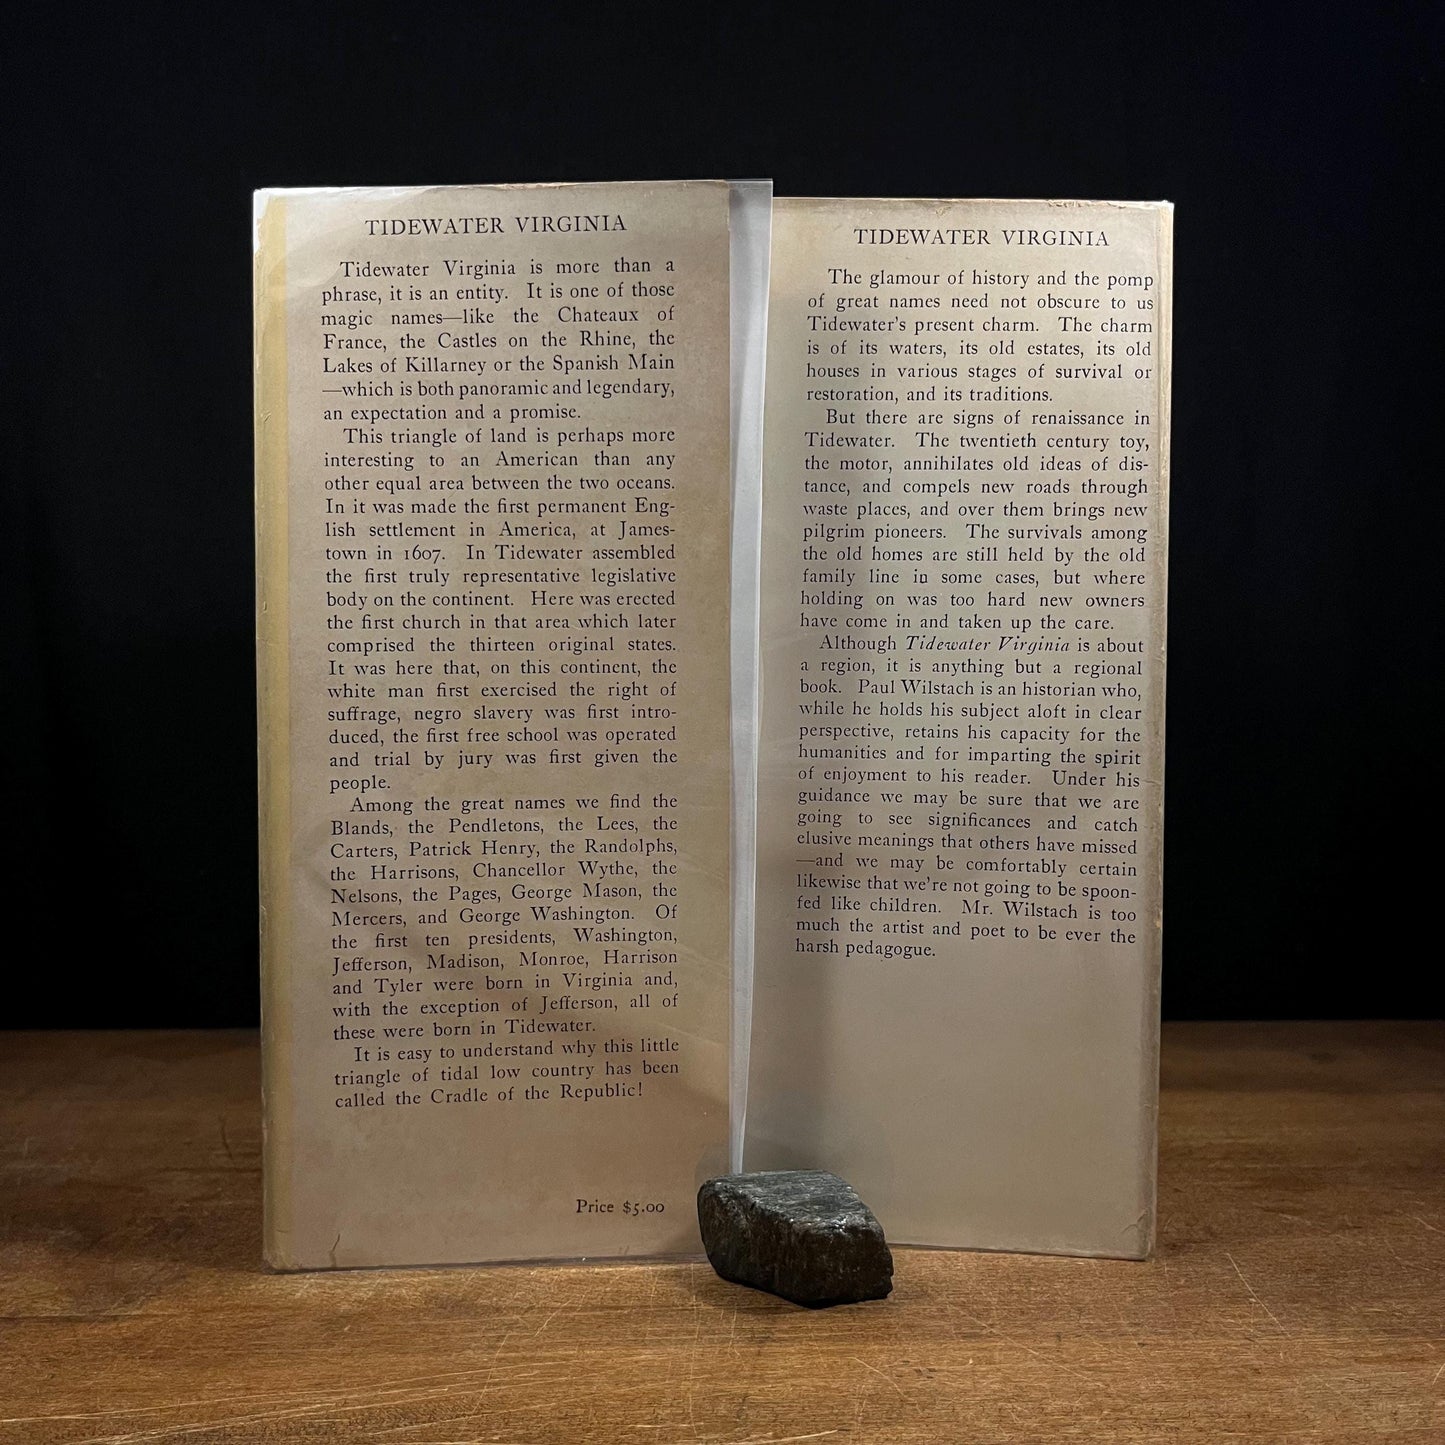 TIDEWATER VIRGINIA
Tidewater Virginia is more than a
phrase, it is an entity. It is one of those
magic names—like the Chateaux of
France, the Castles on the Rhine, the
Lakes of Killarney or the Spanish Main
—which is both panoramic and legendary,
an expectation and a promise.
This triangle of land is perhaps more
interesting to an American than any
other equal area between the two oceans.
In it was made the first permanent Eng-
lish settlement in America, at James-
town in 1607. In Tidewater assembled
the first truly representative legislative
body on the continent. Here was erected
the first church in that area which later
comprised the thirteen original states.
It was here that, on this continent, the
white man first exercised the right of
suffrage, negro slavery was first intro-
duced, the first free school was operated
and trial by jury was first given the
people.
Among the great names we find the
Blands, the Pendletons, the Lees, the
Carters, Patrick Henry, the Randolphs,
the Harrisons, Chancellor Wythe, the
Nelsons, the Pages, George Mason, the
Mercers, and George Washington. Of
the first ten presidents, Washington,
Jefferson, Madison, Monroe, Harrison
and Tyler were born in Virginia and,
with the exception of Jefferson, all of
these were born in Tidewater.
It is easy to understand why this little
triangle of tidal low country has been
called the Cradle of the Republic!
Price $5.00
TIDEWATER VIRGINIA
The glamour of history and the pomp
of great names need not obscure to us
Tidewater's present charm. The charm
is of its waters, its old estates, its old
houses in various stages of survival or
restoration, and its traditions.
But there are signs of renaissance in
Tidewater. The twentieth century toy,
the motor, annihilates old ideas of dis-
tance, and compels new roads through
waste places, and over them brings new
pilgrim pioneers. The survivals among
the old homes are still held by the old
family line in some cases, but where
holding on was too hard new owners
have come in and taken up the care.
Although Tidewater Virginia is about
a region, it is anything but a regional
book. Paul Wilstach is an historian who,
while he holds his subject aloft in clear
perspective, retains his capacity for the
humanities and for imparting the spirit
of enjoyment to his reader. Under his
guidance we may be sure that we are
going to see significances and catch
elusive meanings that others have missed
—and we may be comfortably certain
likewise that we're not going to be spoon-
fed like children. Mr. Wilstach is too
much the artist and poet to be ever the
harsh pedagogue.